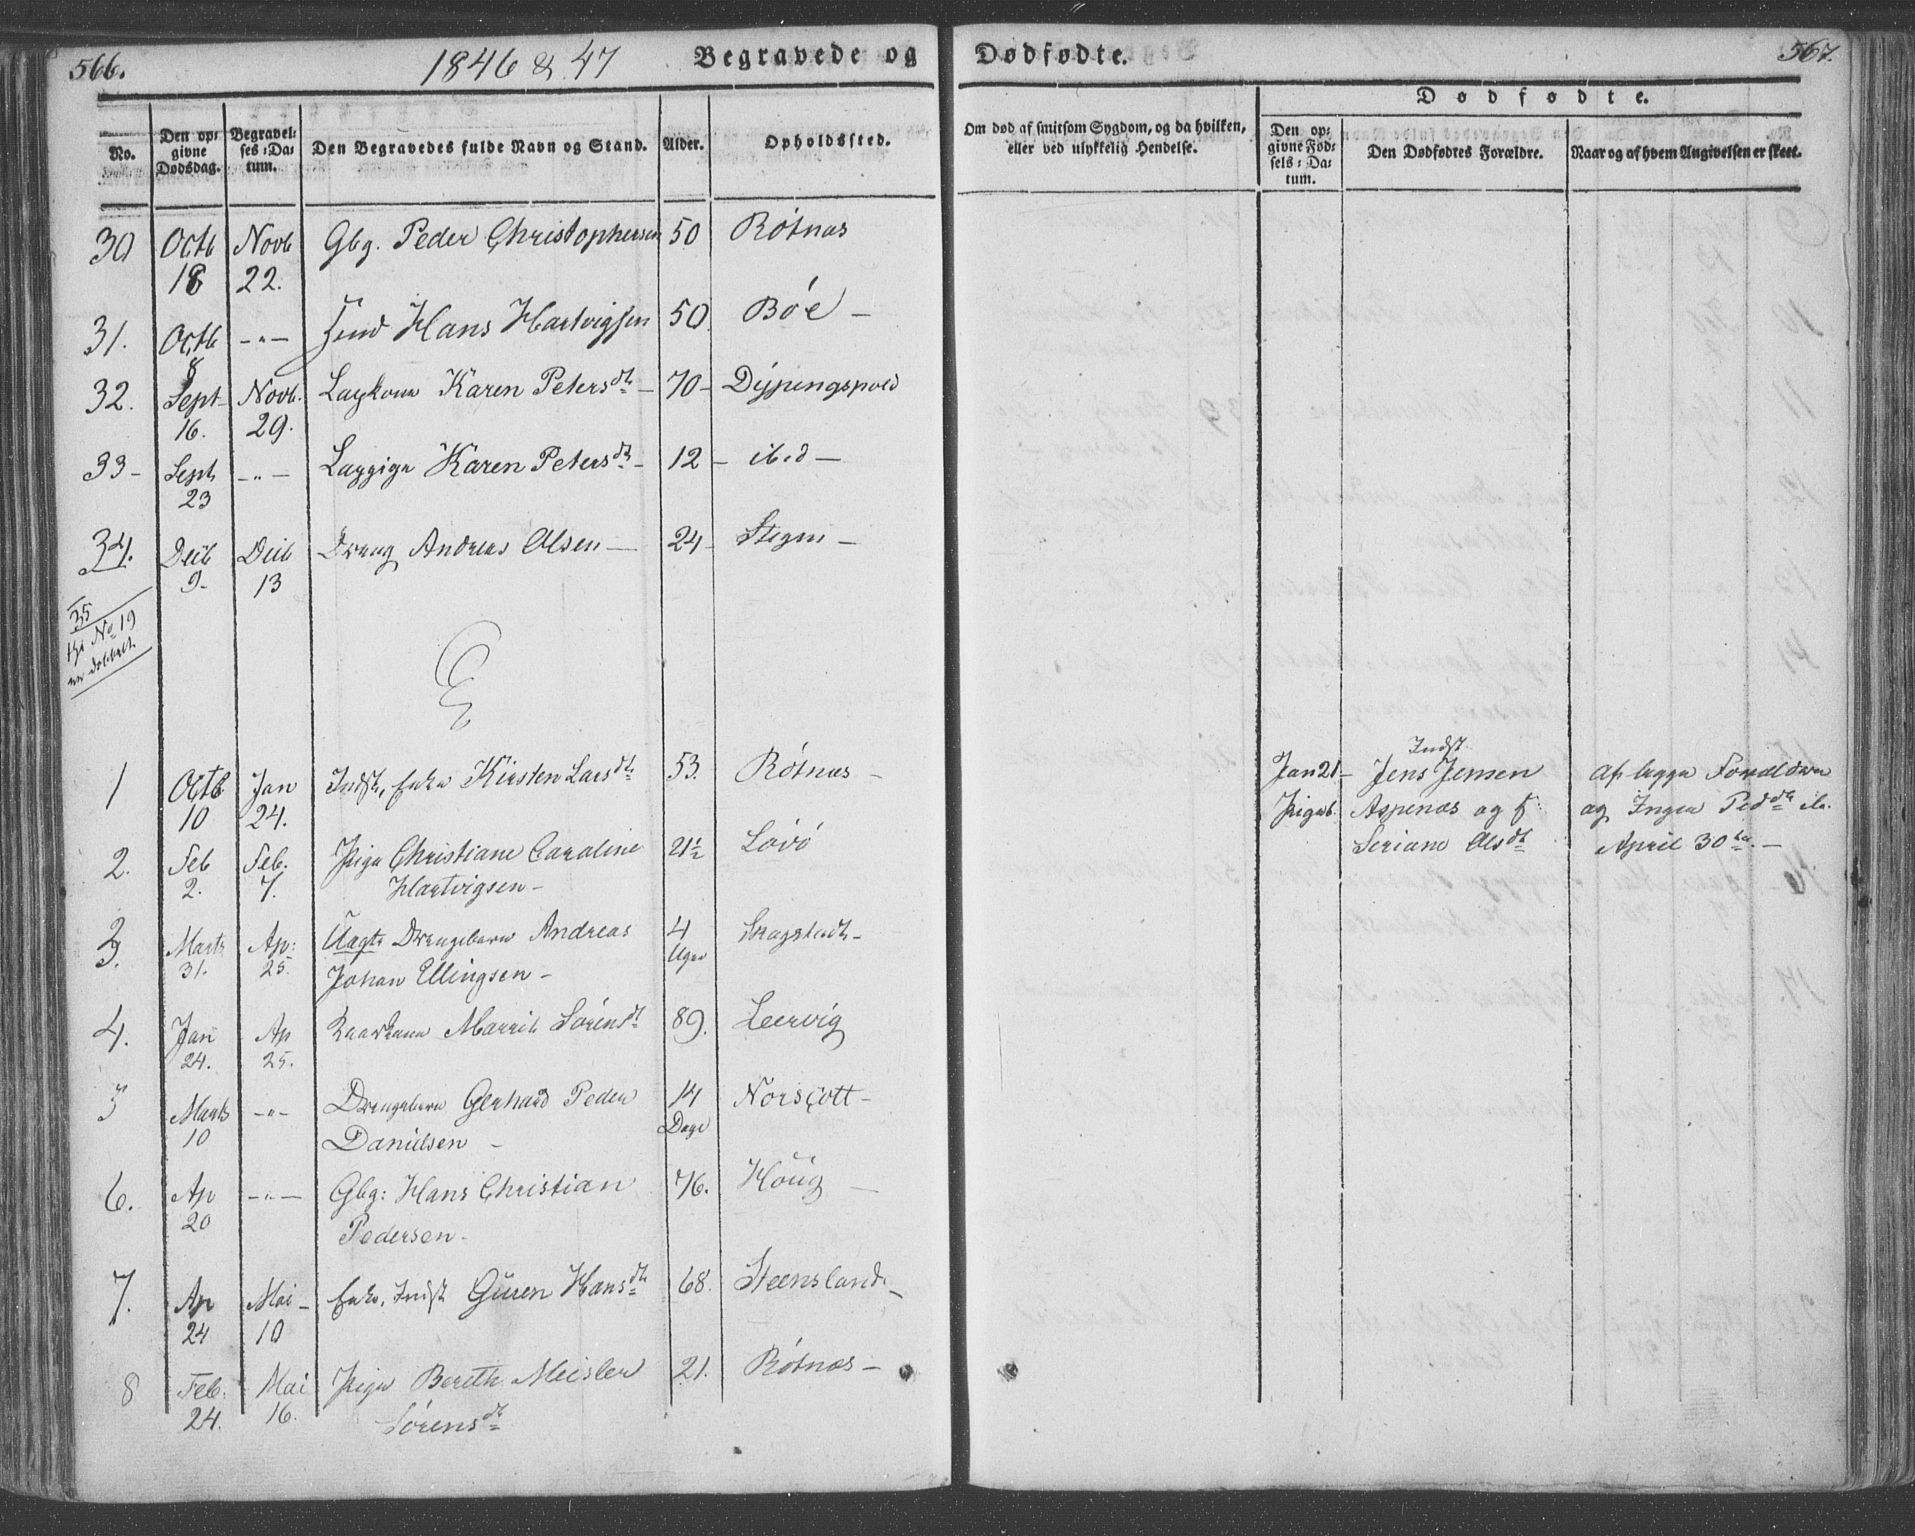 566.
1846 & 47
Begravede og
Dødfødte.
567.
No.
Den op-
givne
Dødsdag.
Begravel-
ses-Da-
tum.
Den Begravedes fulde Navn og Stand.
Alder.
Opholdssted.
Om død af smitsom Sygdom, og da hvilken,
eller ved ulykkelig Hendelse.
Dødfødte.
Den op-
givne Fød-
sels-Da-
tum.
Den Dødfødtes Forældre.
Naar og af hvem Angivelsen er skeet.
30 Octb 18 Novb 22. Gbg. Peder Christophersen 50 Røtnæs
31. Octb 8 -"- Hans Hartvigsen 50 Bøe -
32. Sept 16. Novb. 29. Karen Petersdtr - 70 -
33 - Sept 23 -"- Karen Petersdtr - 12 - ibid -
34. Decb 9. Decb 13 Dreng Andreas Olsen - 24 - Stegen -
35
thi No 19
er dobbelt
1 Octb 10 Jan 24. Indst. Enke Kirsten Larsdtr 53. Røtnæs -
2. Feb 2. Feb. 7. Pige Christiane Caroline 21½ Løvø
Hartvigsen -
3. Marts 31. Ap: 25. Uægte Drengebarn Andreas 4 Uger Skagstadt -
Johan Ellingsen -
4. Jan 24. Ap 25. Sørensdtr 89. Leervig
5 Marts 10 -"- Drengebarn Gerhard Peder 14 Dage
Danielsen -
6. Ap 20 -"- Gbg: Hans Christian 76. Houg -
Pedersen -
7. Ap 24 Mai 10 Enke, Indst Guren Hansdtr 68. Steensland -
8 Feb. 24. Mai 16. Pige Bereth Meisler 21. Røtnæs -
Sørensdtr
Jan 21 - Indst. Jens Jensen af begge Forældrene
Pigeb. Aspenæs og og Inger Peddtr ib.
Seriane Olsdtr April 30te. -